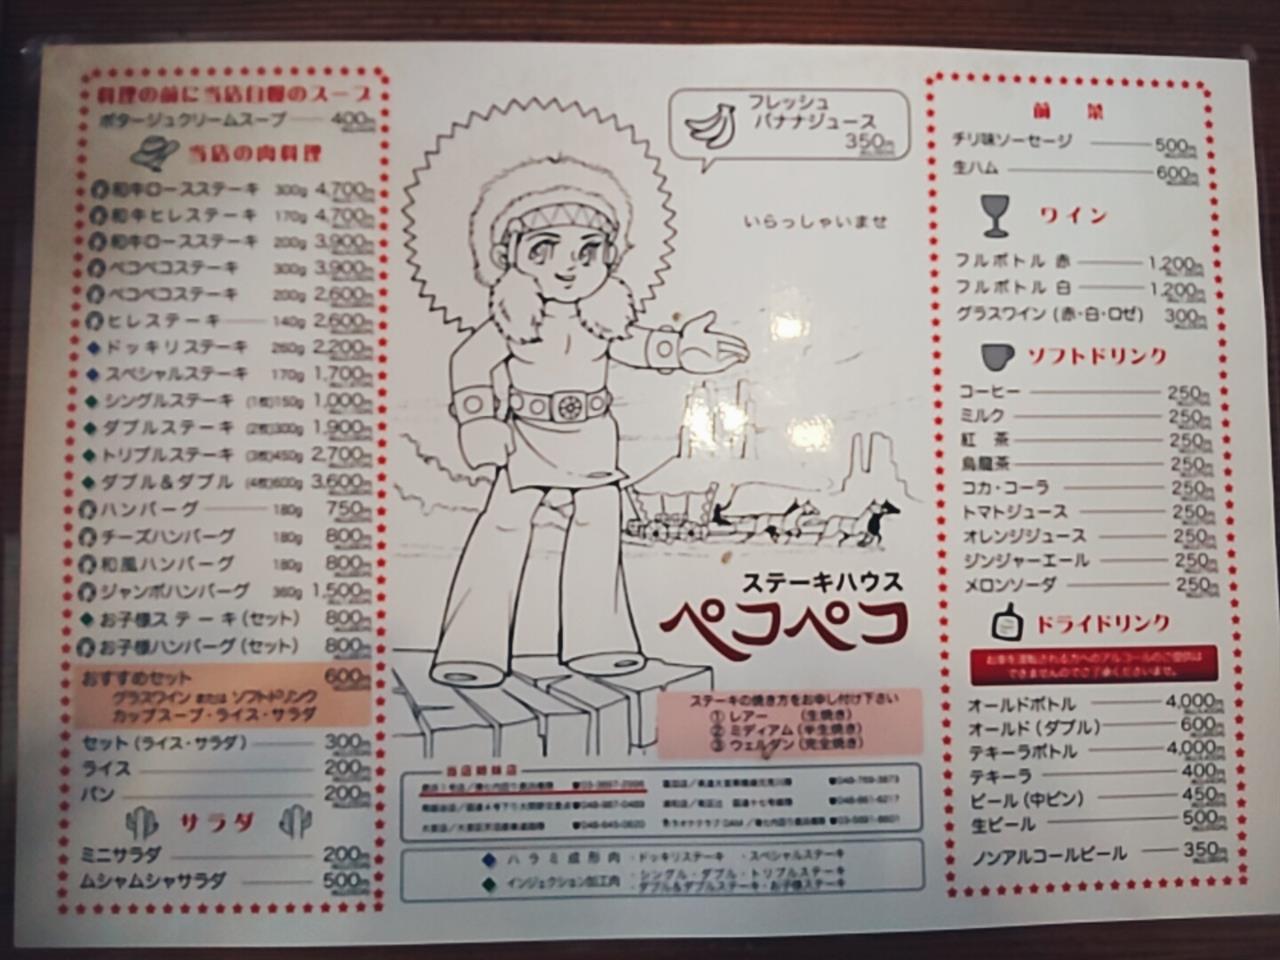 料理の前に当店自慢のスープ
ポタージュクリームスープ 400円
当店の肉料理
和牛ロースステーキ 300g 4,700円
和牛ヒレステーキ 170g 4,700円
和牛ロースステーキ 200g 3,900円
ペコペコステーキ 300g 3,900円
ペコペコステーキ 200g 2,600円
ヒレステーキ 140g 2,600円
ドッキリステーキ 260g 2,200円
スペシャルステーキ 170g 1,700円
シングルステーキ (1枚)150g 1,000円
ダブルステーキ (2枚)300g 1,900円
トリプルステーキ (3枚)450g 2,700円
ダブル&ダブル (4枚)600g 3,600円
ハンバーグ 180g 750円
チーズハンバーグ 180g 800円
和風ハンバーグ 180g 800円
ジャンボハンバーグ 360g 1,500円
お子様ステーキ(セット) 800円
お子様ハンバーグ(セット) 800円
おすすめセット 600円
グラスワイン または ソフトドリンク
カップスープ・ライス・サラダ
セット(ライス・サラダ) 300円
ライス 200円
パン 200円
サラダ
ミニサラダ 200円
ムシャムシャサラダ 500円
フレッシュ
バナナジュース
350円
いらっしゃいませ
ステーキハウス
ペコペコ
ステーキの焼き方をお申し付け下さい
① レアー (生焼き)
② ミディアム (半生焼き)
③ ウェルダン (完全焼き)
当店姉妹店
◆ ハラミ成形肉 ・ドッキリステーキ ・スペシャルステーキ
◆ インジェクション加工肉 ・シングル・ダブル・トリプルステーキ
・ダブル&ダブルステーキ・お子様ステーキ
前菜
チリ味ソーセージ 500円
生ハム 600円
ワイン
フルボトル 赤 1,200円
フルボトル 白 1,200円
グラスワイン (赤・白・ロゼ) 300円
ソフトドリンク
コーヒー 250円
ミルク 250円
紅茶 250円
烏龍茶 250円
コカ・コーラ 250円
トマトジュース 250円
オレンジジュース 250円
ジンジャーエール 250円
メロンソーダ 250円
ドライドリンク
お車を運転される方へのアルコールのご提供は
できませんのでご了承くださいませ。
オールドボトル 4,000円
オールド(ダブル) 600円
テキーラボトル 4,000円
テキーラ 400円
ビール(中ビン) 450円
生ビール 500円
ノンアルコールビール 350円